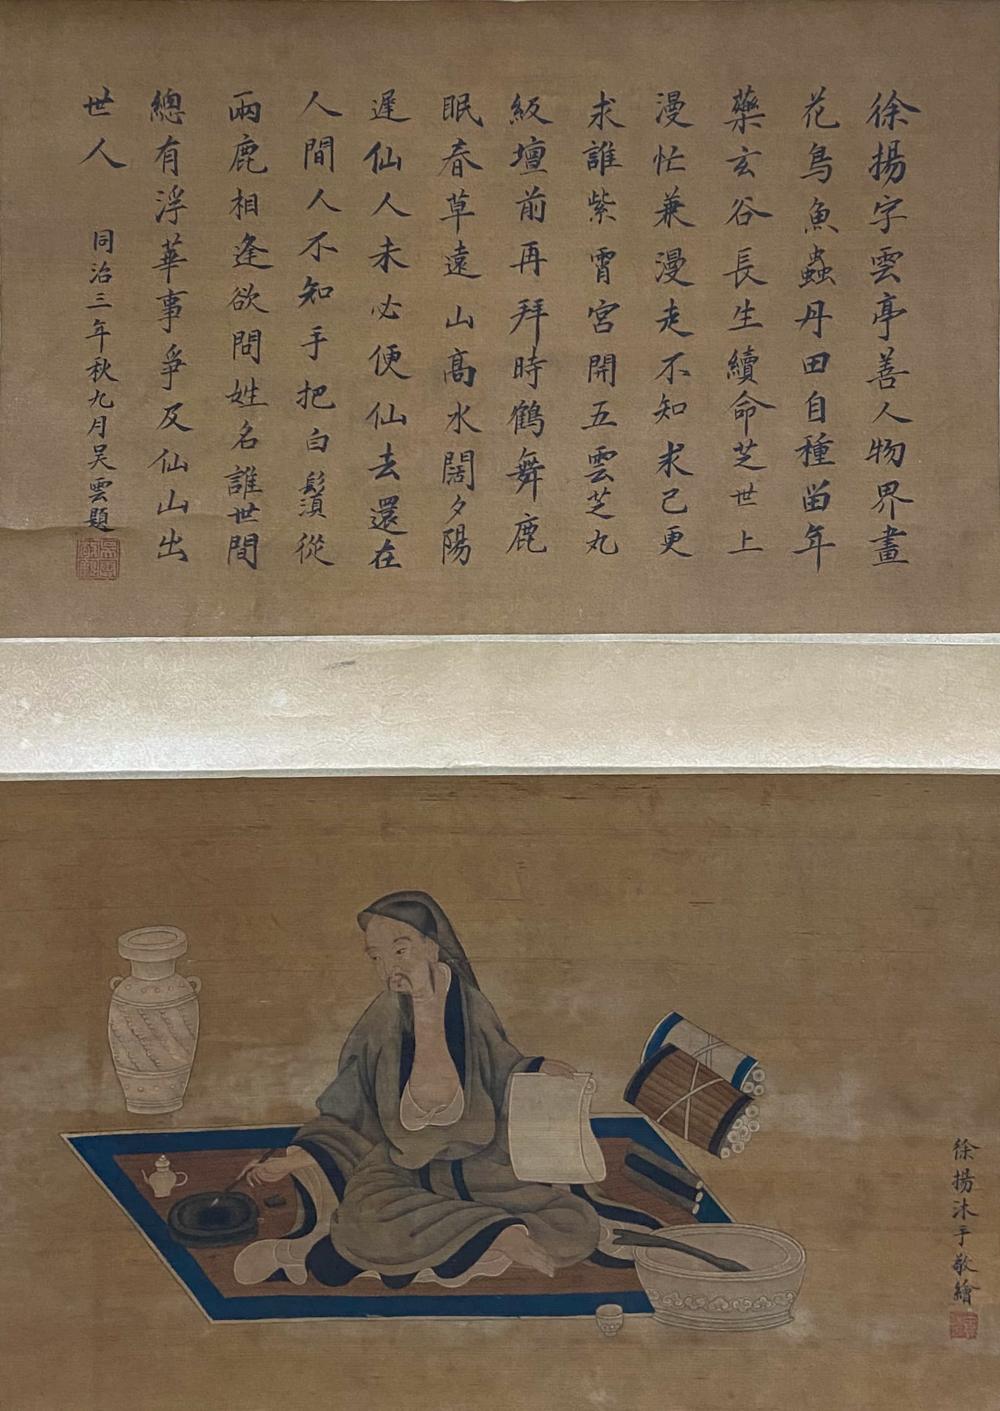 徐揚字雲亭善人物界畫
花鳥魚蟲丹田自種留年
藥玄谷長生續命芝世上
漫忙兼漫走不知求己更
求誰紫霄宮開五雲芝丸
級壇前再拜時鶴舞鹿
眠春草遠山高水闊夕陽
遲仙人未必便仙去還在
人間人不知手把白鬚從
兩鹿相逢欲問姓名誰世間
總有浮華事爭及仙山出
世人
同治三年秋九月吳雲題
徐揚沐手敬繪